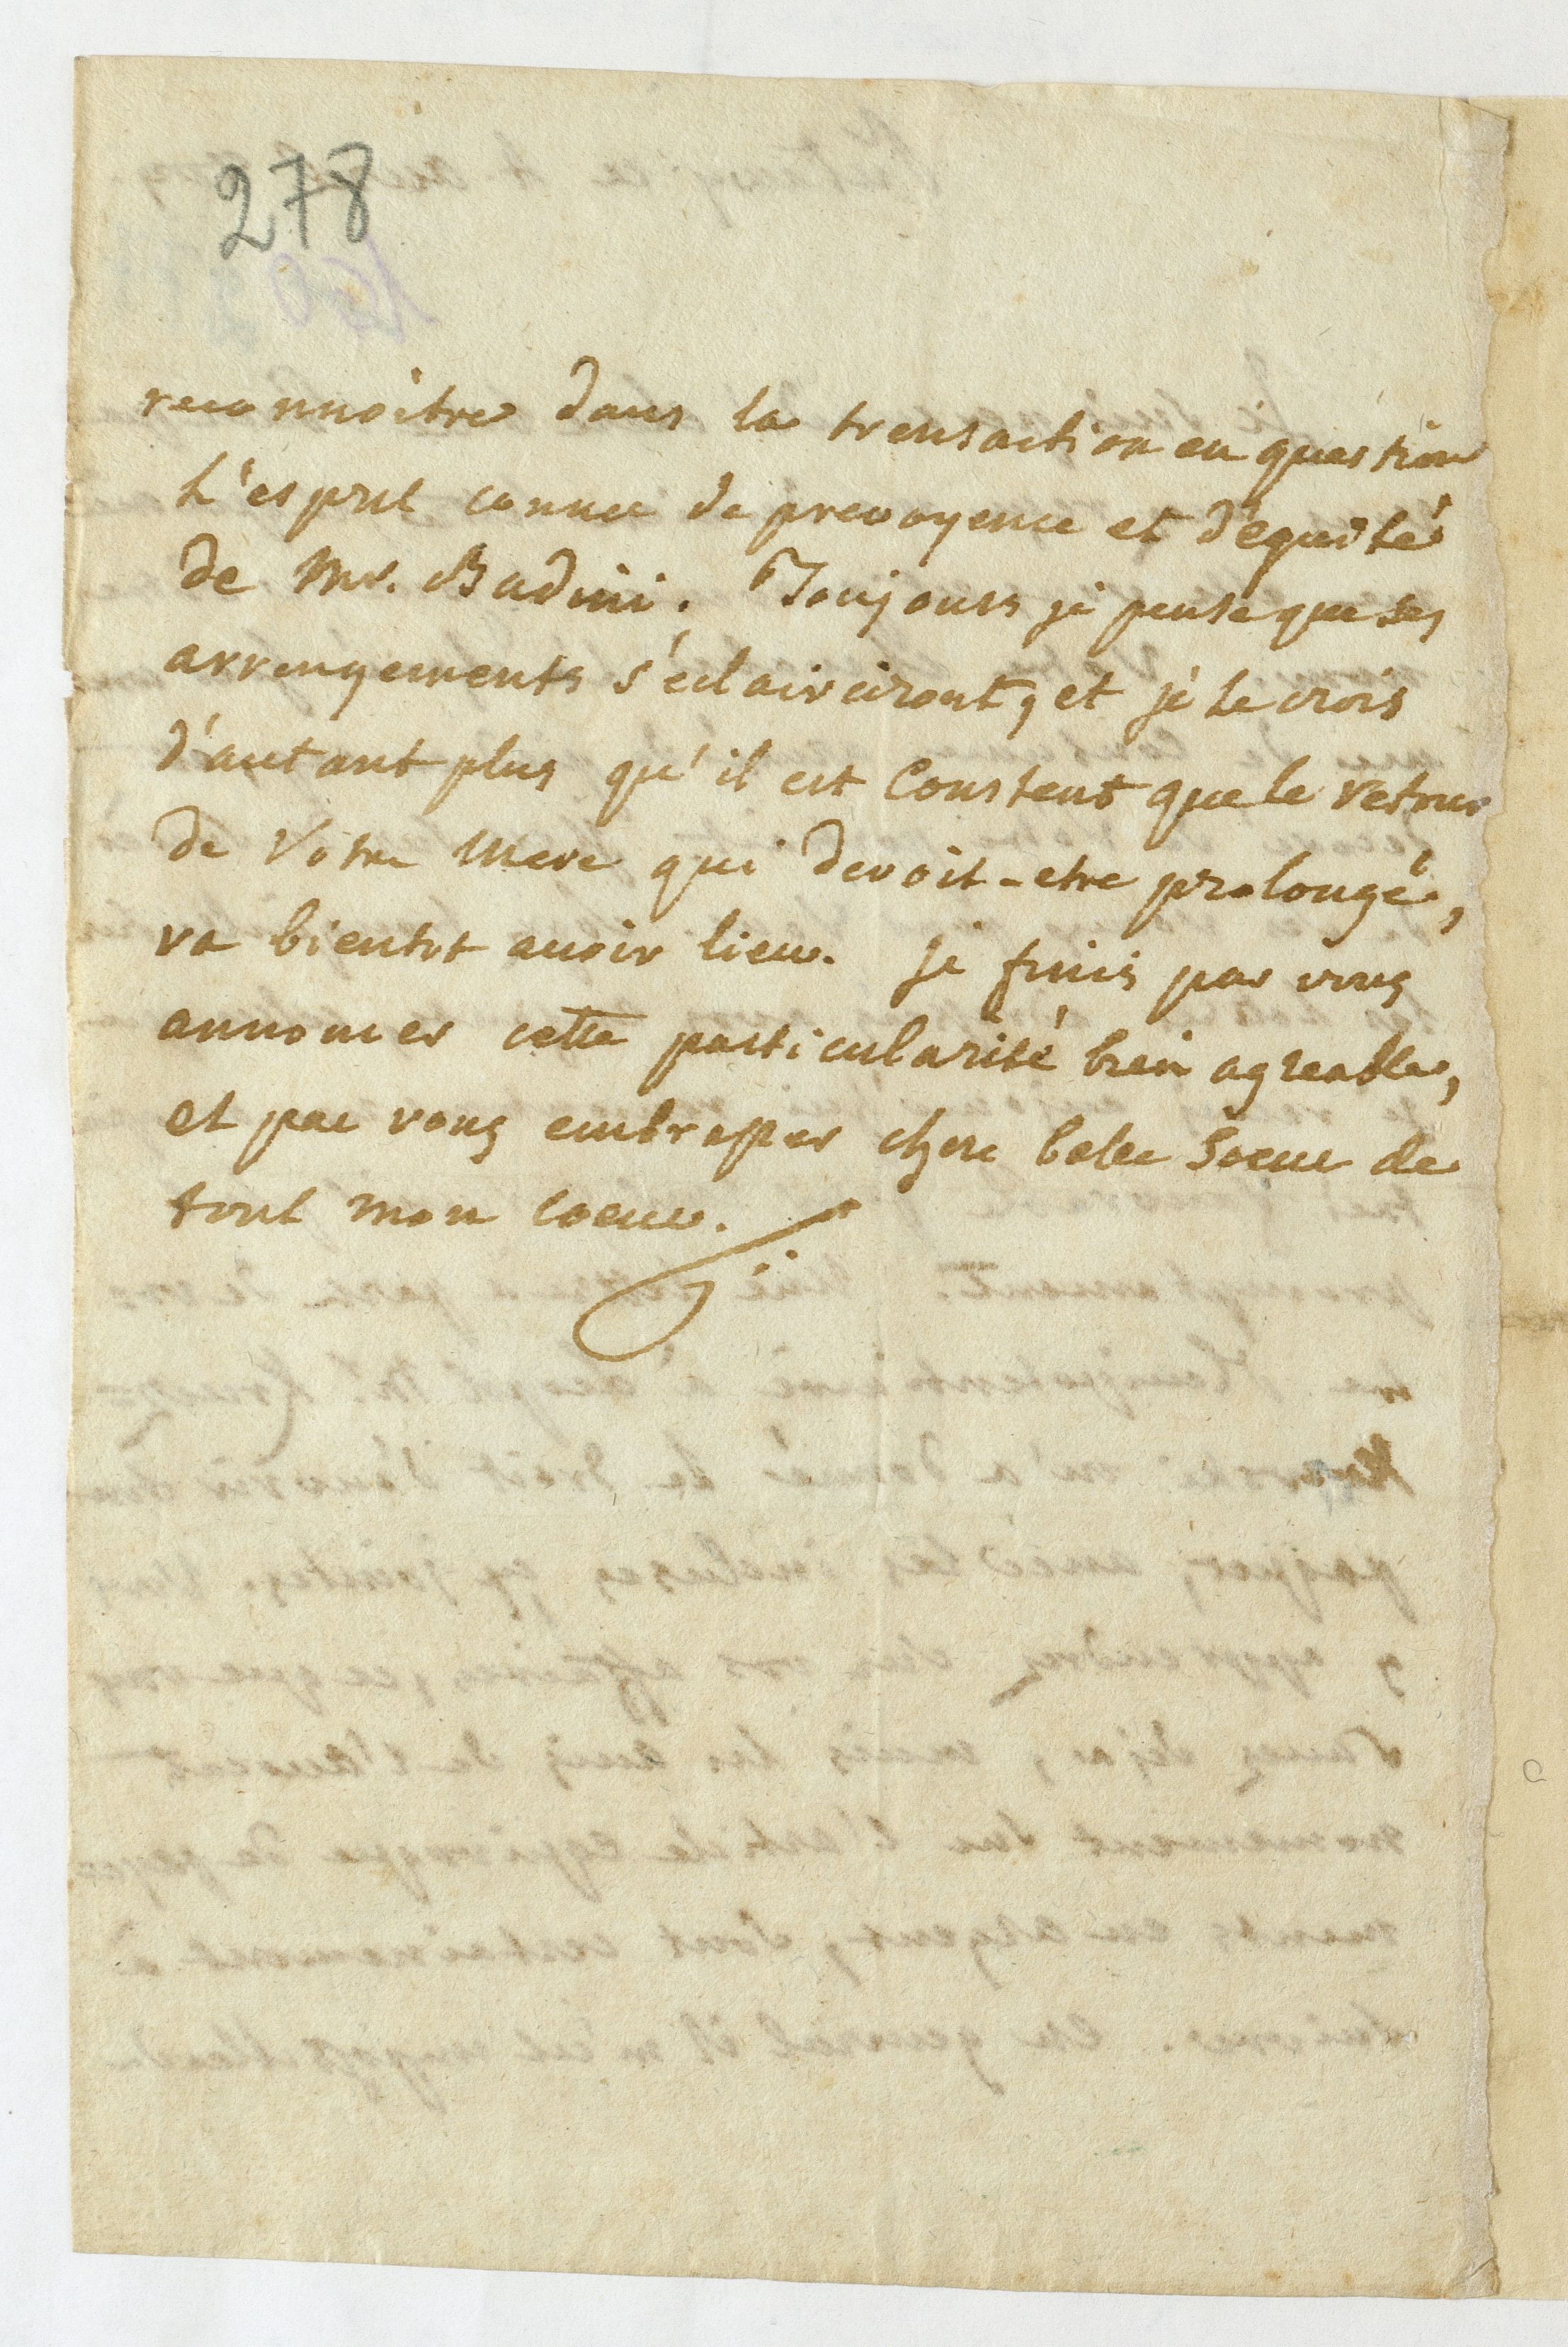 278
reconnoitre dans la transaction en question
l'esprit connu de prevoyence et d'equité
de Mr. Badini. Toujours je pense que ses
arrengements s'eclairciront, et je le crois
d'autant plus qu'il est Constent que le retour
de Votre Mere qui devoit-etre prolongé,
va bientot avoir lieu. je finis par vous
annoncer cette particularité bien agreable,
et par vous embrasser chere belle Soeur de
tout mon coeur.